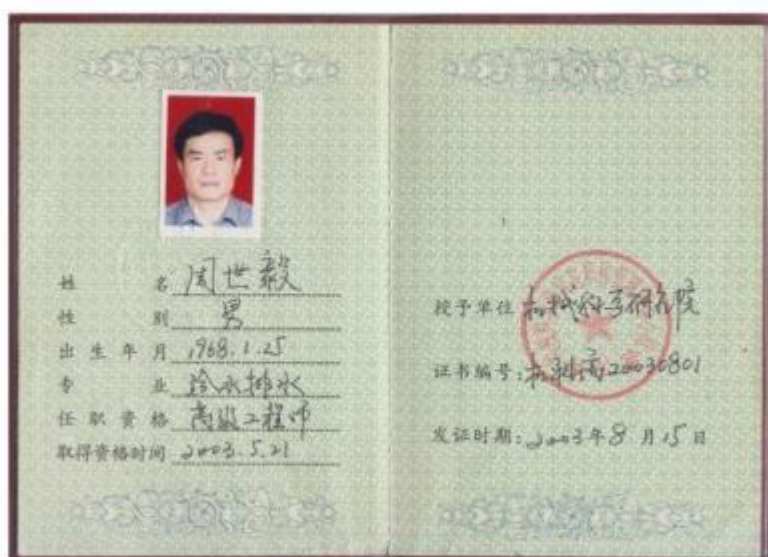 姓名 周世毅
性别 男
出生年月 1968.1.25
专业 给水排水
任职资格 高级工程师
取得资格时间 2003.5.21
授予单位 机械科学研究院
证书编号: 机科高20030801
发证时期: 2003年8月15日